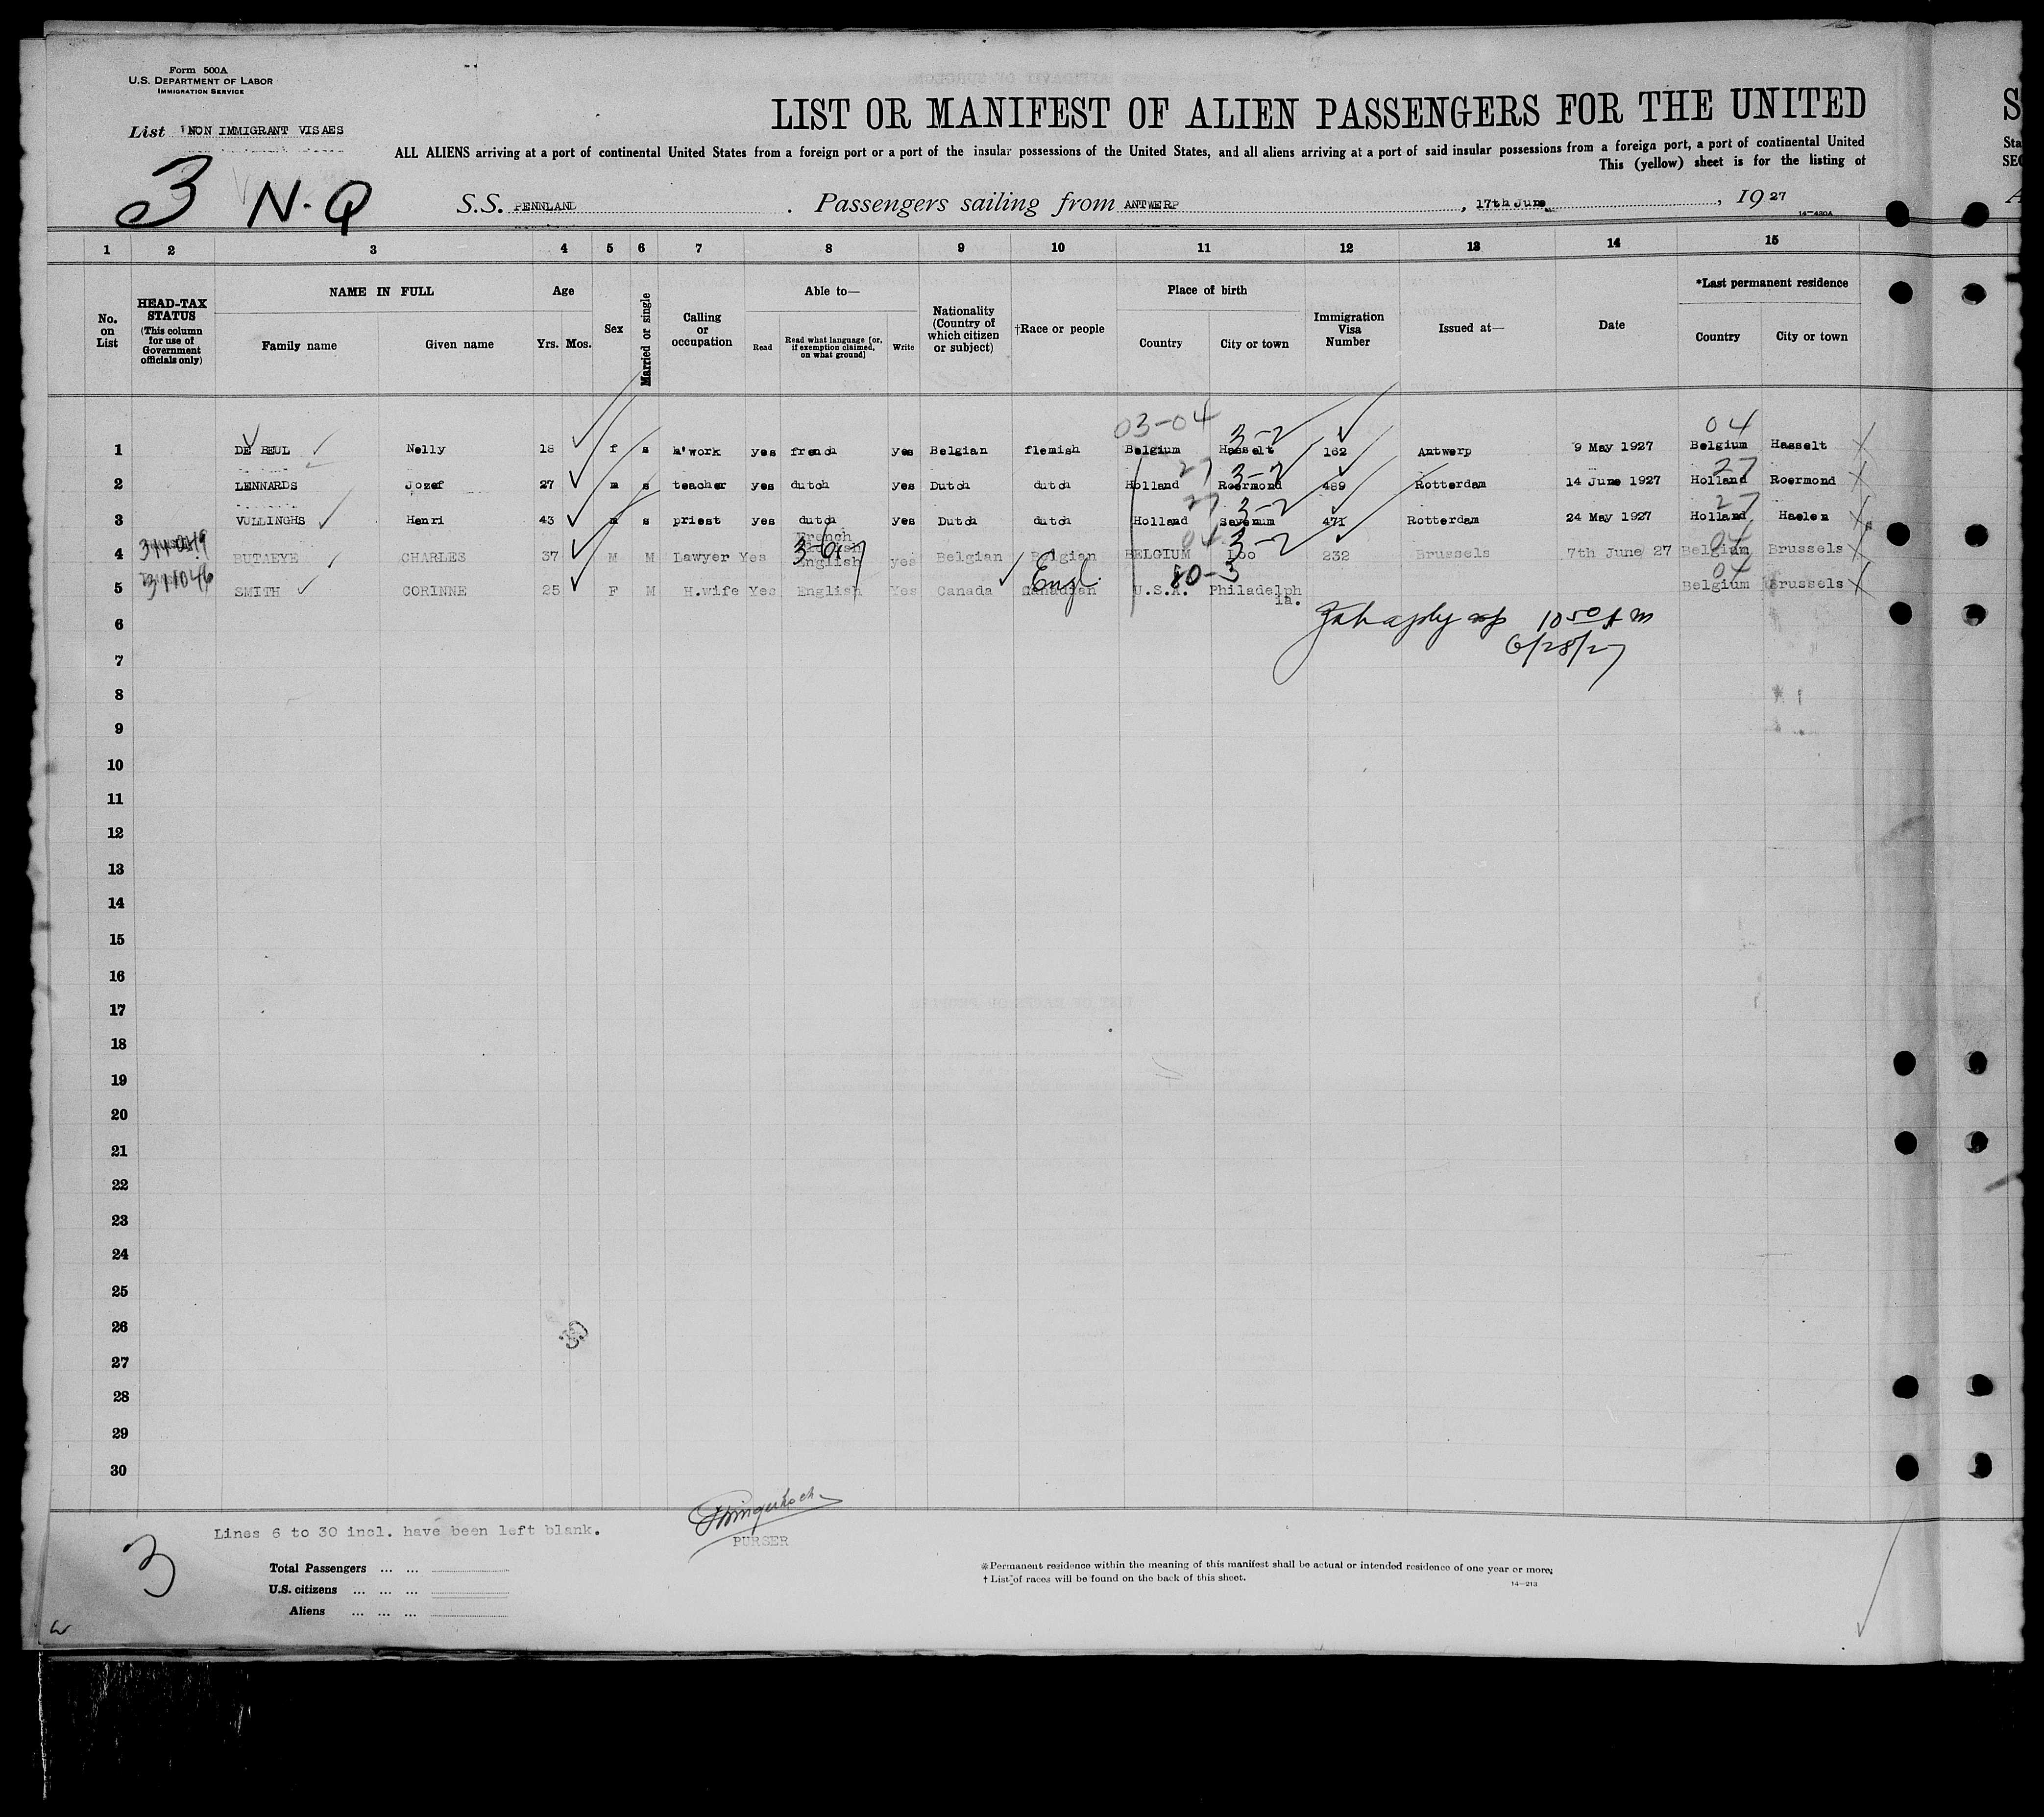 Form 500A
U.S. DEPARTMENT OF LABOR
IMMIGRATION SERVICE
List NON IMMIGRANT VISAES
3 N-Q
LIST OR MANIFEST OF ALIEN PASSENGERS FOR THE UNITED
ALL ALIENS arriving at a port of continental United States from a foreign port or a port of the insular possessions of the United States, and all aliens arriving at a port of said insular possessions from a foreign port, a port of continental United
This (yellow) sheet is for the listing of
S.S. PENNLAND. Passengers sailing from ANTWERP, 17th June, 1927
14-430A
S
Sta
SEC
A
1 2 3 4 5 6 7 8 9 10 11 12 13 14 15
No. on List
HEAD-TAX STATUS (This column for use of Government officials only)
NAME IN FULL
Family name Given name
Age
Yrs. Mos.
Sex
Married or single
Calling or occupation
Able to—
Read Read what language [or, if exemption claimed, on what ground] Write
Nationality (Country of which citizen or subject)
†Race or people
Place of birth
Country City or town
Immigration Visa Number
Issued at—
Date
*Last permanent residence
Country City or town
03-04 3-2 04
1 DE BEUL Nelly 18 f s h'work yes french yes Belgian flemish Belgium Hasselt 162 Antwerp 9 May 1927 Belgium Hasselt
27 3-2 27
2 LENNARDS Jozef 27 m s teacher yes dutch yes Dutch dutch Holland Roermond 489 Rotterdam 14 June 1927 Holland Roermond
27 3-2 27
3 VULLINGHS Henri 43 m s priest yes dutch yes Dutch dutch Holland Sevenum 471 Rotterdam 24 May 1927 Holland Haelen
04 3-2 04
4 BUTAEYE CHARLES 37 M M Lawyer Yes French English yes Belgian Belgian BELGIUM Loo 232 Brussels 7th June 27 Belgium Brussels
Engl. 80-3 04
5 311046 SMITH CORINNE 25 F M H.wife Yes English Yes Canada Canadian U.S.A. Philadelphia. Belgium Brussels
6
10 50 A M
6/28/27
7
8
9
10
11
12
13
14
15
16
17
18
19
20
21
22
23
24
25
26
27
28
29
30
Lines 6 to 30 incl. have been left blank.
PURSER
3
Total Passengers ... ...
U.S. citizens ... ... ...
Aliens ... ... ...
*Permanent residence within the meaning of this manifest shall be actual or intended residence of one year or more.
†List of races will be found on the back of this sheet.
14-213